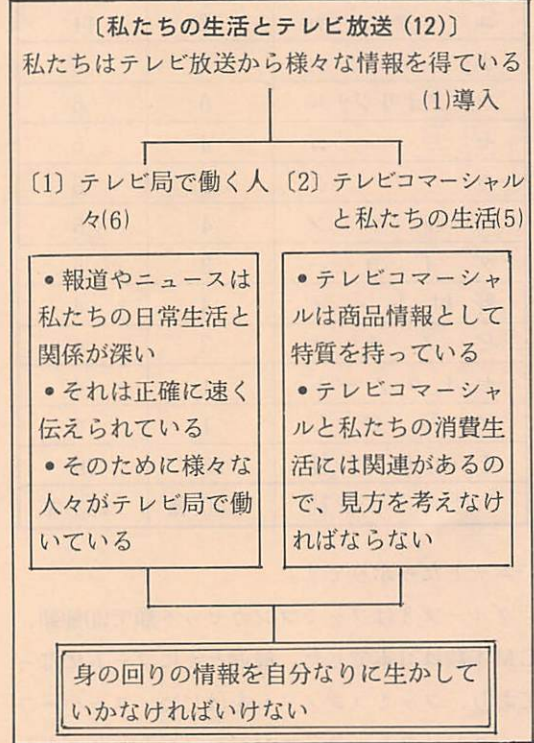 〔私たちの生活とテレビ放送（12）〕
私たちはテレビ放送から様々な情報を得ている
(1)導入
〔1〕テレビ局で働く人
々(6)
〔2〕テレビコマーシャル
と私たちの生活(5)
•報道やニュースは
私たちの日常生活と
関係が深い
•それは正確に速く
伝えられている
•そのために様々な
人々がテレビ局で働
いている
•テレビコマーシャ
ルは商品情報として
特質を持っている
•テレビコマーシャ
ルと私たちの消費生
活には関連があるの
で、見方を考えなけ
ればならない
身の回りの情報を自分なりに生かして
いかなければいけない